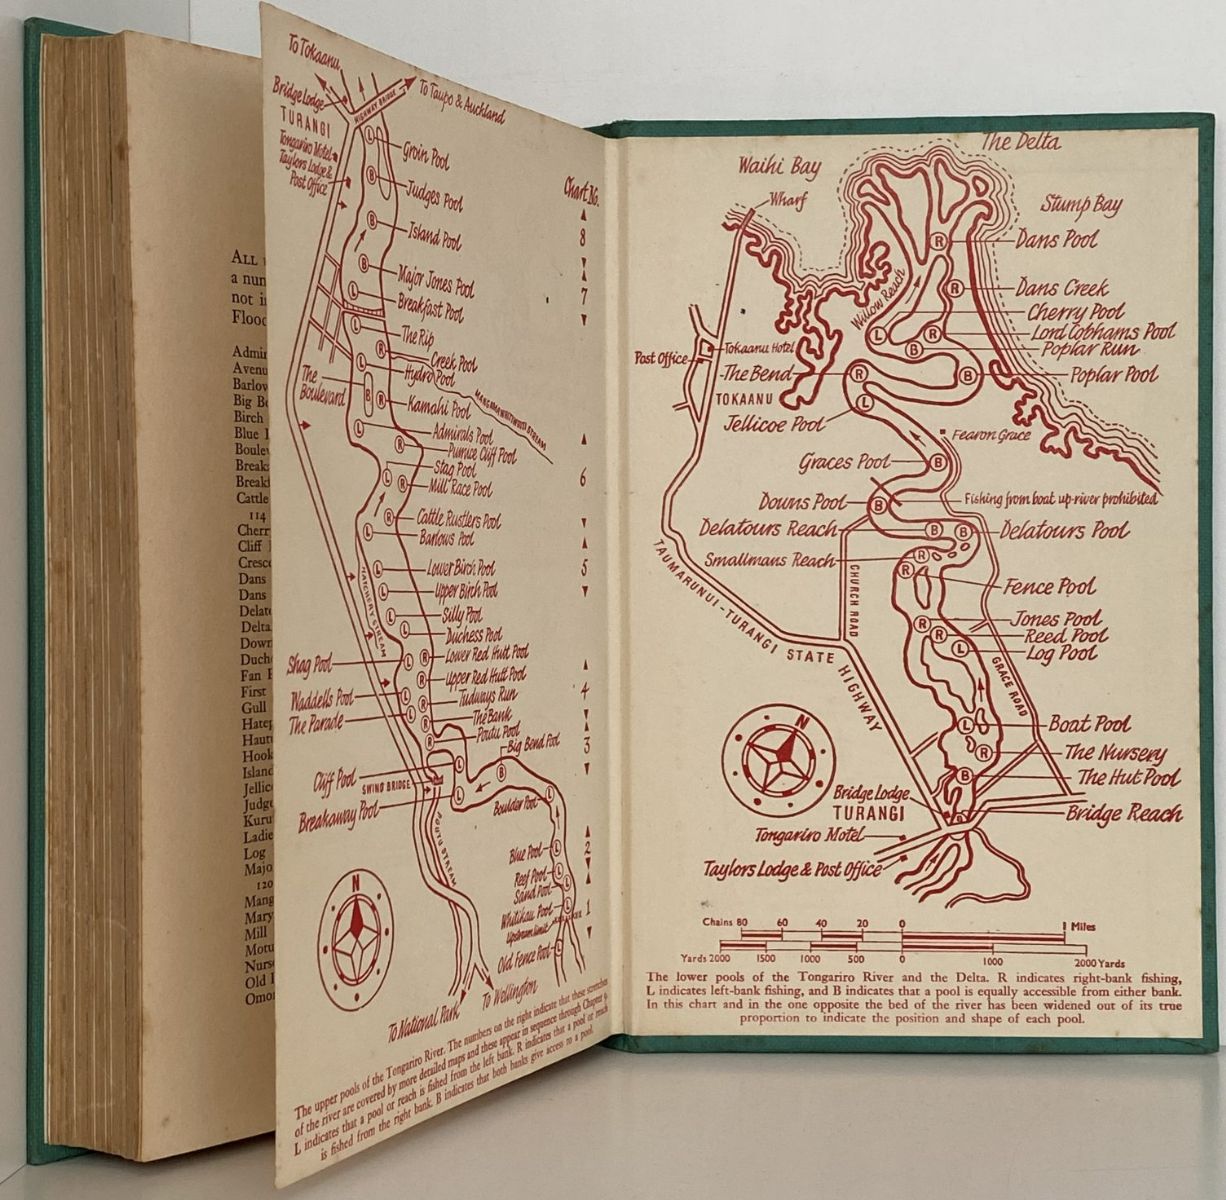 ALL
a num
not i
Flood
Admir
Avenu
Barlow
Big Be
Birch
Blue
Boulev
Break
Breakf
Cattle
114
Cherr
Cliff
Cresce
Dans
Dans
Delato
Delta
Down
Duch
Fan
First
Gull
Hatep
Haut
Hook
Island
Jellic
Judge
Kuru
Ladie
Log
Majo
120
Mang
Mary
Mill
Motu
Nurse
Old
Omor
To Tokaanu
To Taupo & Auckland
HIGHWAY BRIDGE
Bridge Lodge
TURANGI
Tongariro Motel
Taylors Lodge &
Post Office
Groin Pool
Judges Pool
Chart No.
Island Pool
8
Major Jones Pool
7
Breakfast Pool
The Rip
Creek Pool
Hydro Pool
The
Boulevard
Kamahi Pool
Admirals Pool
Pumice Cliff Pool
Stag Pool
6
Mill Race Pool
Cattle Rustlers Pool
Barlows Pool
Lower Birch Pool
5
Upper Birch Pool
HATCHERY STREAM
Silly Pool
Duchess Pool
Shag Pool
Lower Red Hutt Pool
Upper Red Hutt Pool
4
Waddells Pool
Tudways Run
The Parade
The Bank
Poutu Pool
Big Bend Pool
3
Cliff Pool
SWING BRIDGE
Breakaway Pool
Boulder Pool
POUTU STREAM
Blue Pool
2
Reef Pool
Sand Pool
Whitikau Pool
1
Upstream limit
Old Fence Pool
N
To National Park
To Wellington
The upper pools of the Tongariro River. The numbers on the right indicate that these stretches
of the river are covered by more detailed maps and these appear in sequence through Chapter
L indicates that a pool or reach is fished from the left bank. R indicates that a pool or reach
is fished from the right bank. B indicates that both banks give access to a pool.
The Delta
Waihi Bay
Wharf
Stump Bay
Dans Pool
Willow Reach
Dans Creek
Cherry Pool
Lord Cobhams Pool
Poplar Run
Post Office
Tokaanu Hotel
The Bend
Poplar Pool
TOKAANU
Jellicoe Pool
Fearon Grace
Graces Pool
Downs Pool
Fishing from boat up-river prohibited
Delatours Reach
Delatours Pool
Smallmans Reach
Fence Pool
CHURCH ROAD
Jones Pool
Reed Pool
Log Pool
TAUMARUNUI-TURANGI STATE HIGHWAY
GRACE ROAD
Boat Pool
N
The Nursery
The Hut Pool
Bridge Lodge
TURANGI
Bridge Reach
Tongariro Motel
Taylors Lodge & Post Office
Chains 80 60 40 20 0 1 Miles
Yards 2000 1500 1000 500 0 1000 2000 Yards
The lower pools of the Tongariro River and the Delta. R indicates right-bank fishing,
L indicates left-bank fishing, and B indicates that a pool is equally accessible from either bank.
In this chart and in the one opposite the bed of the river has been widened out of its true
proportion to indicate the position and shape of each pool.